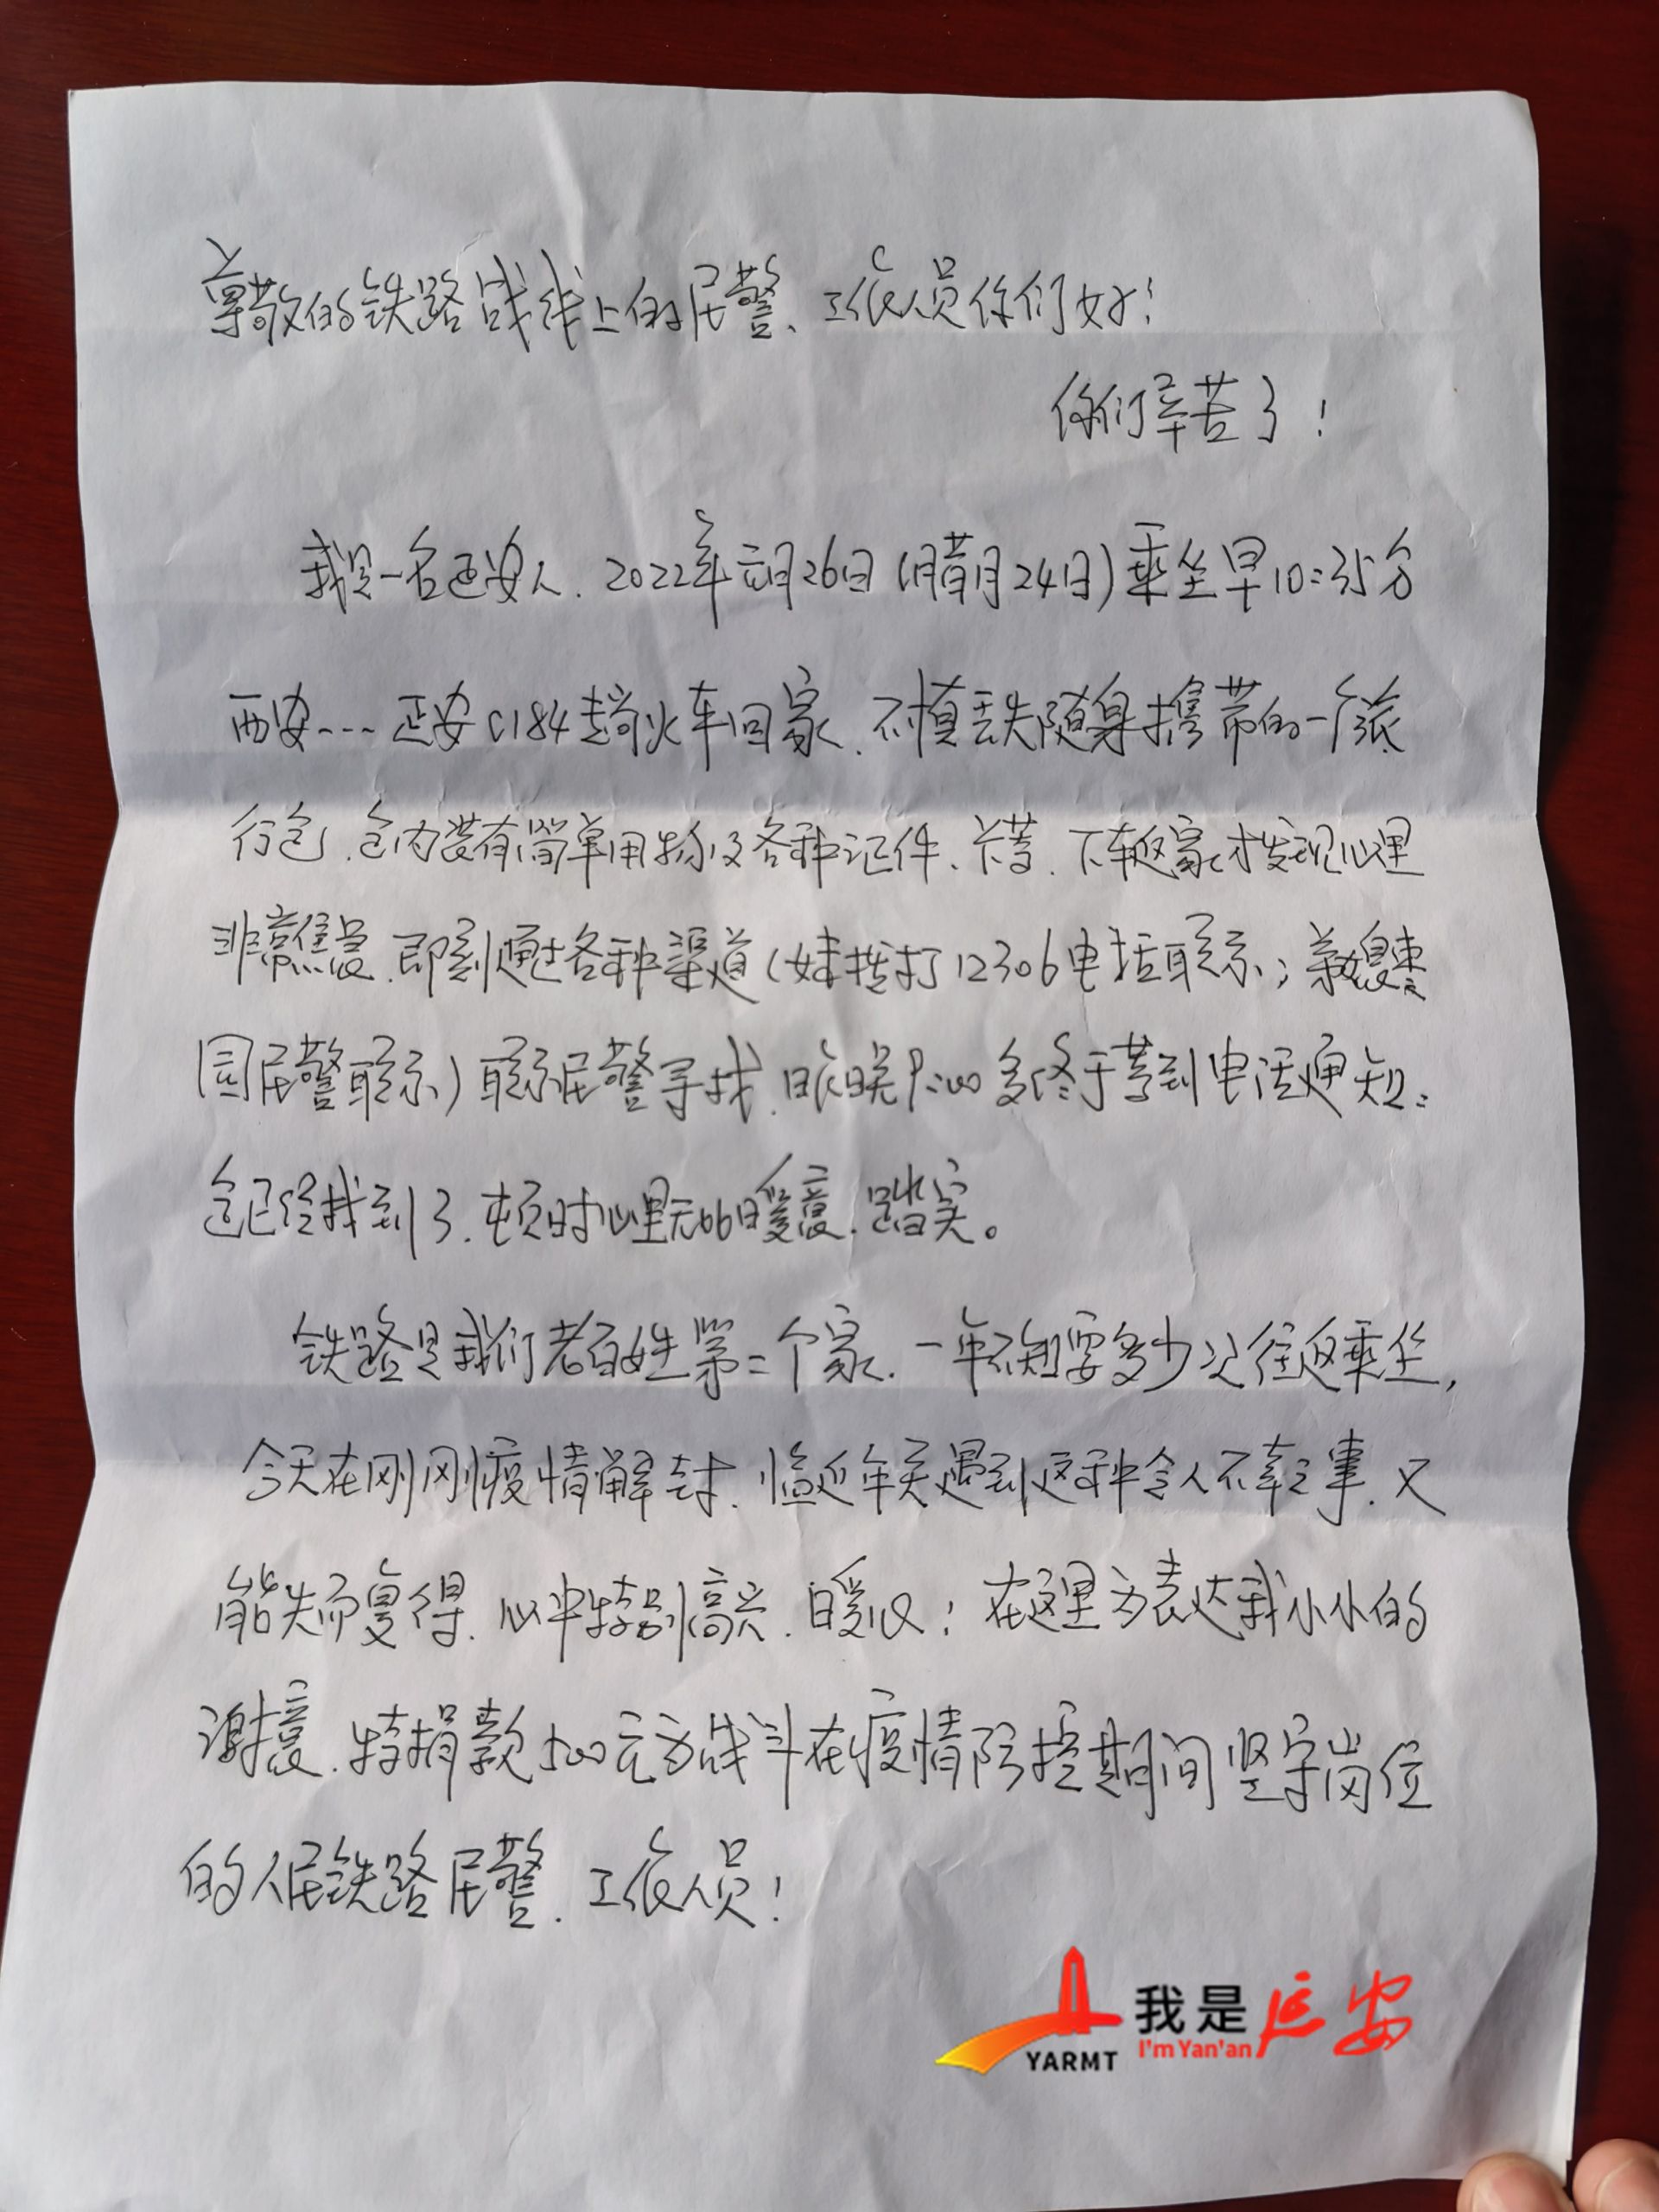 尊敬的铁路战线上的民警、工作人员你们好！
你们辛苦了！
我是一名延安人.2022年元月26日(腊月24日)乘坐早10:35分
西安---延安C184趟火车回家.不慎丢失随身携带的一个旅
行包.包内装有简单用物及各种证件、卡等.下车返家才发现心里
非常焦急.即刻通过各种渠道(妹拨打12306电话联系;弟媳枣
园民警联系)联系民警寻找.昨晚9:00多终于等到电话通知:
包已经找到了.顿时心里无比暖意.踏实。
铁路是我们老百姓第二个家.一年不知要多少次往返乘坐,
今天在刚刚疫情解封.临近年关遇到这种令人不幸之事.又
能失而复得.心中特别高兴.暖心!在这里为表达我小小的
谢意.特捐款500元为战斗在疫情防控期间坚守岗位
的人民铁路民警.工作人员!
我是延安
I'm Yan'an
YARMT